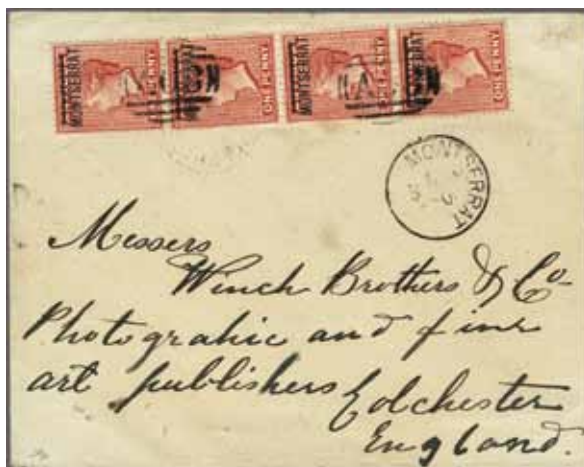 MONTSERRAT ONE PENNY MONTSERRAT ONE PENNY MONTSERRAT ONE PENNY MONTSERRAT ONE PENNY
MONTSERRAT
Messers
Winch Brothers & Co
Photograhic and fine
art publishers Colchester
England.